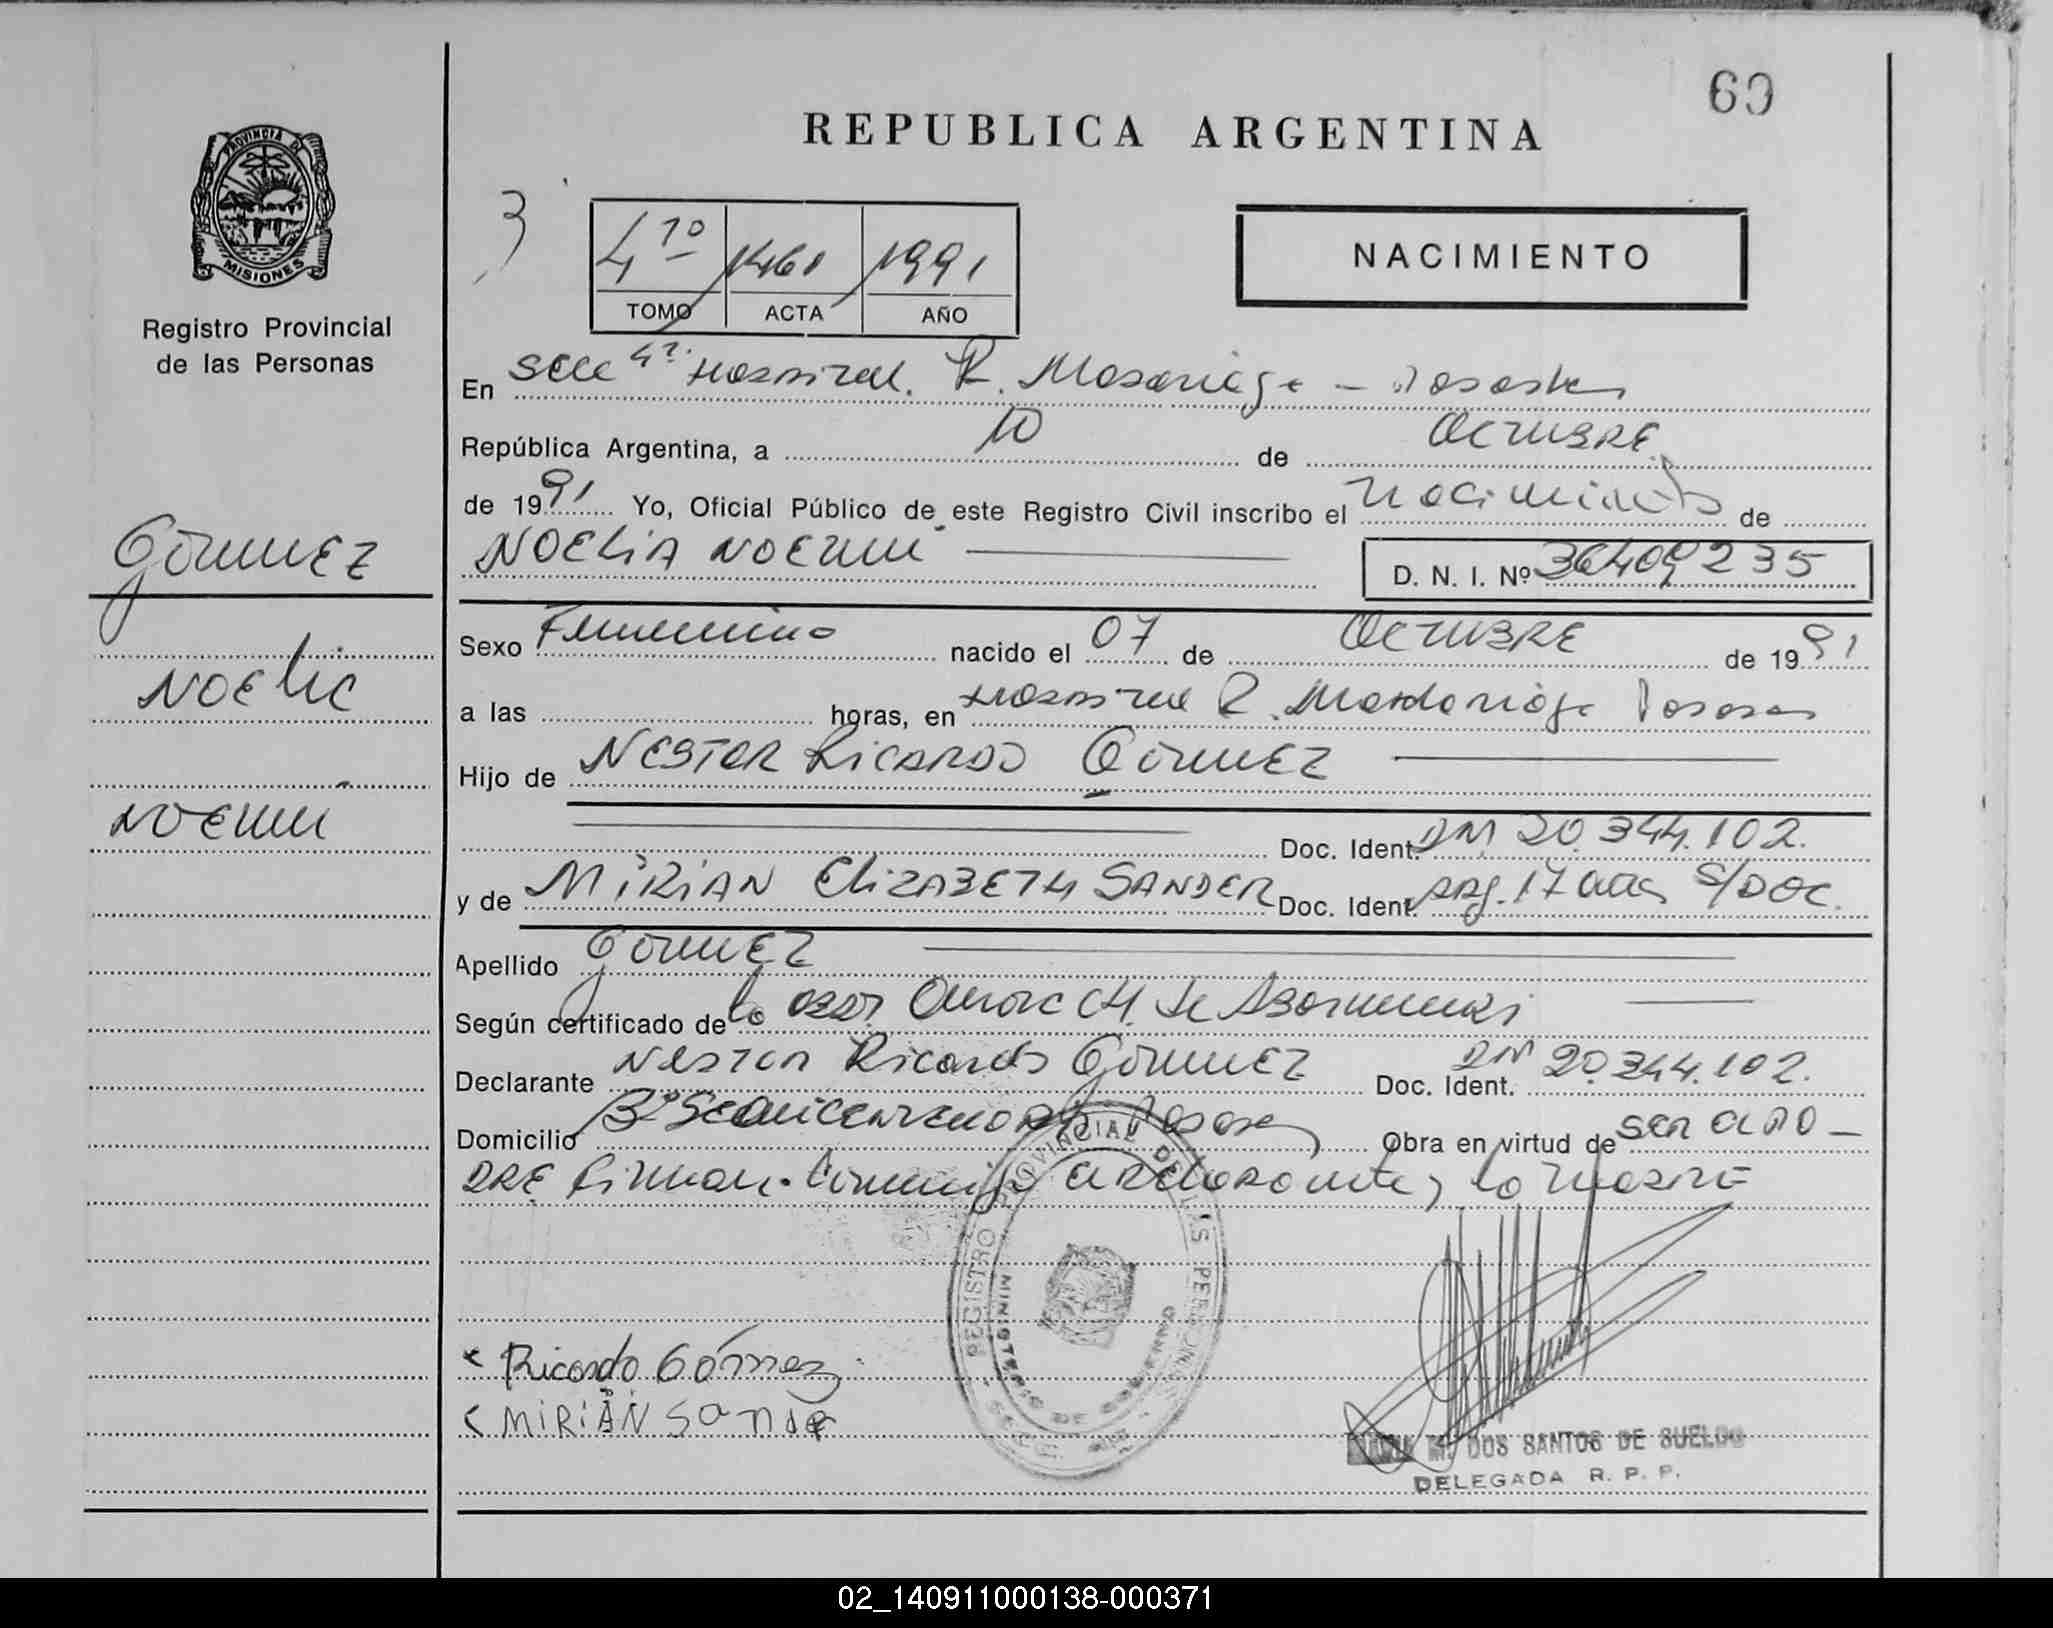 60
REPUBLICA ARGENTINA
PROVINCIA DE
MISIONES
Registro Provincial
de las Personas
3
4º 1461 1991
TOMO ACTA AÑO
NACIMIENTO
En Secc 4ª. Hospital. R. Madariaga - Posadas
República Argentina, a 10 de OCTUBRE
de 1991 Yo, Oficial Público de este Registro Civil inscribo el nacimiento de
NOELIA NOEMI D. N. I. Nº 36409235
GÓMEZ
NOELIA
NOEMI
Sexo Femenino nacido el 07 de OCTUBRE de 1991
a las horas, en Hospital R. Madariaga Posadas
Hijo de NESTOR RICARDO GÓMEZ
Doc. Ident. DNI 20.344.102.
y de MIRIAN ELIZABETH SANDER Doc. Ident. Arg. 17 años S/DOC.
Apellido GÓMEZ
Según certificado de la obst.
Declarante NESTOR Ricardo GÓMEZ Doc. Ident. DNI 20.344.102.
Domicilio Bº Posadas Obra en virtud de ser el PA-
DRE Firman declarante y la madre
REGISTRO PROVINCIAL DE LAS PERSONAS
MINISTERIO DE GOBIERNO
Ricardo Gómez
MIRIAN Sander
M. DOS SANTOS DE SUELDO
DELEGADA R. P. P.
02_140911000138-000371